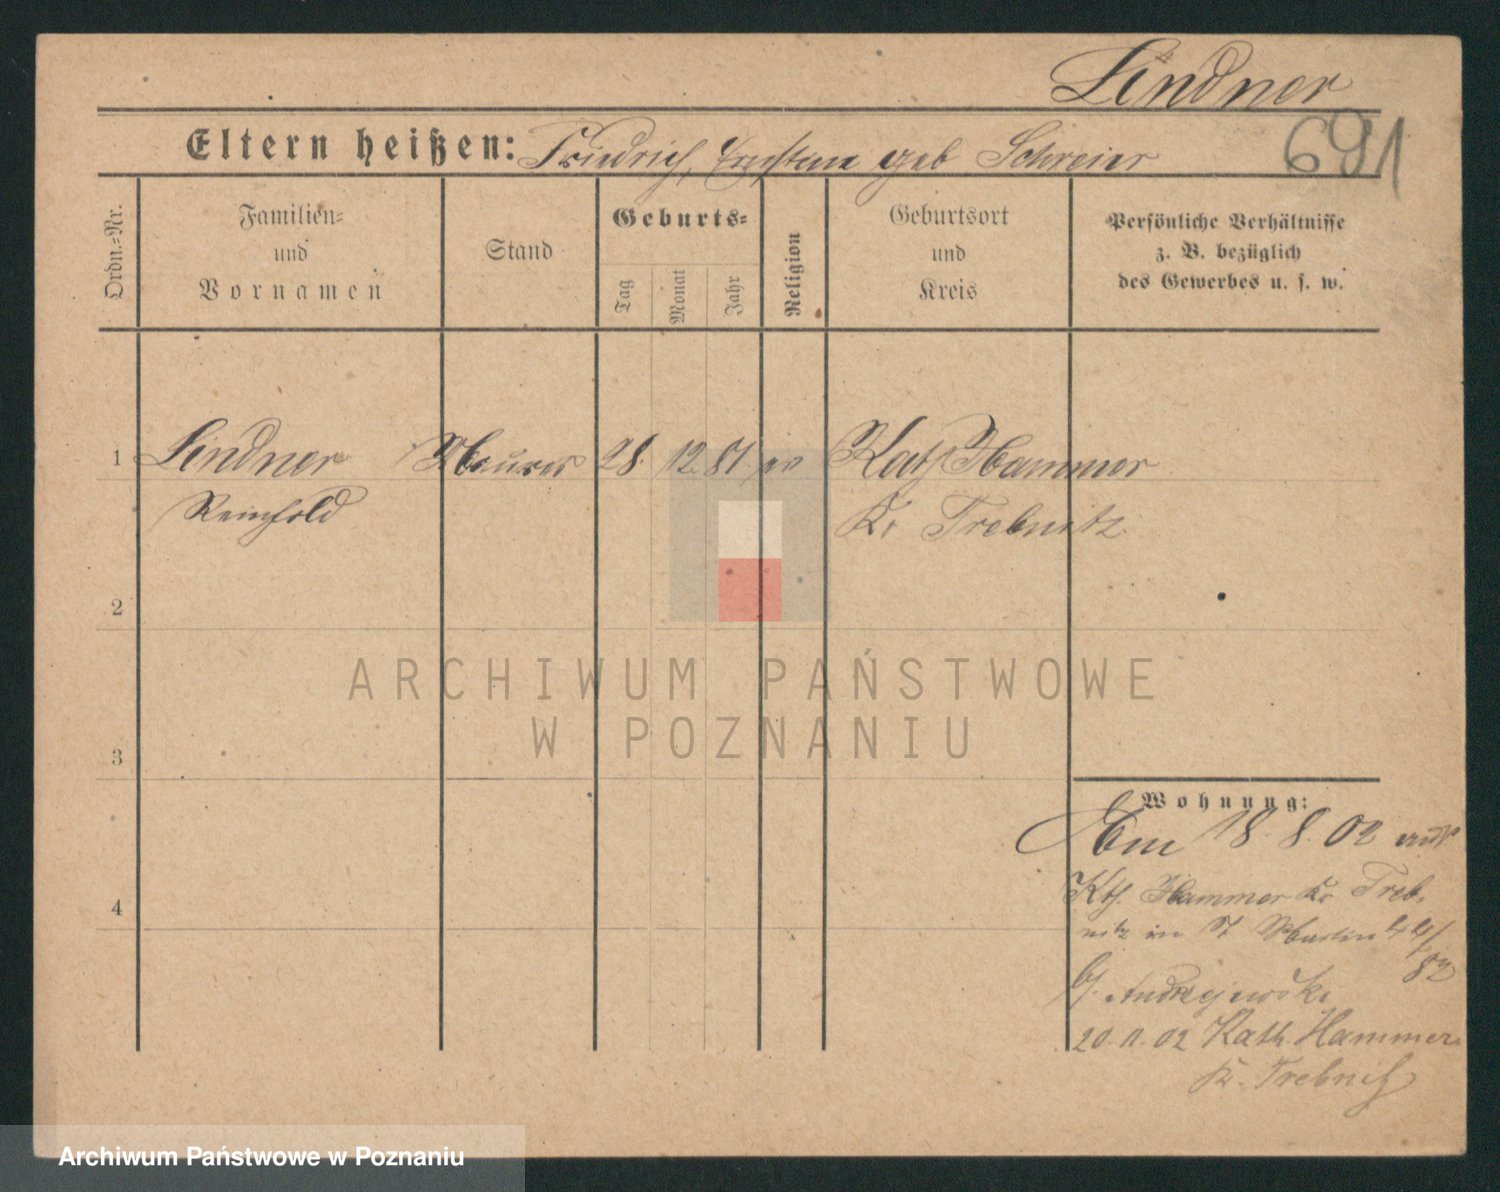 Lindner
691
Eltern heißen: Friedrich, Ernstine geb Schreier
Ordn.-Nr.
Familien-
und
Vornamen
Stand
Geburts-
Tag
Monat
Jahr
Religion
Geburtsort
und
Kreis
Persönliche Verhältnisse
z. B. bezüglich
des Gewerbes u. s. w.
1 Lindner Maurer 28. 12. 81. ev Kath Hammer
Reinhold Kr Trebnitz
2
3
4
Wohnung:
Am 18. 8. 02 aus
Kth. Hammer Kr Treb-
nitz in St Martin 44/
82
b/. Andrzejewski
20. 11. 02 Kath. Hammer
Kr. Trebnitz
ARCHIWUM PAŃSTWOWE
W POZNANIU
Archiwum Państwowe w Poznaniu